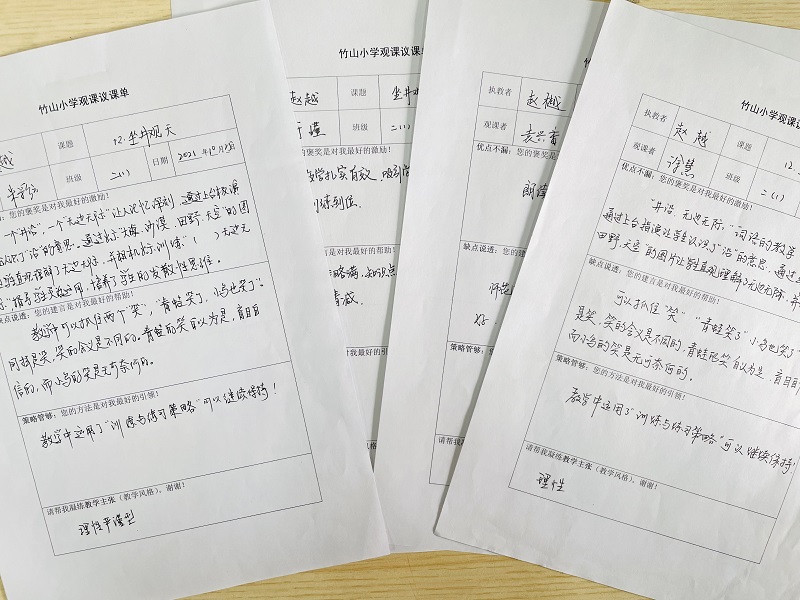 竹山小学观课议课单
越
课题
12.坐井观天
班级
二(1)
日期
您的褒奖是对我最好的激励!
一个"井沿",一个"无边无际"让人记忆深刻,通过上台指演
的意思。通过出示大海、沙漠、田野、天空"的图
无边无
培养了学生的发散性思维。
缺点说透:您的建言是对我最好的帮助!
教学中可以抓住两个"笑","青蛙笑了,小鸟也笑了"!
同样是笑,笑的含义是不同的。青蛙的笑自以为是,盲目自
信的,而小鸟的笑是无可奈何的。
策略管够:您的方法是对我最好的引领!
教学中运用了"训练与练习策略"可以继续保持!
请帮我凝练教学主张(教学风格),谢谢!
理性
竹山小学观课议课单
赵越
课题
坐井
班级
二(1)
您的褒奖是对我最好的激励!
扎实有效,吸引
练到位。
您的建言是对我最好的帮助!
知识点
您的方法是对我最好的引领!
(教学风格),谢谢!
执教者
赵越
观课者
优点不漏:您的褒奖是
朗读
缺点说透:您的建
策略管够:您
请帮我凝练教
竹山小学观课议
执教者
赵越
课题
12.
观课者
徐慧
班级
二(1)
优点不漏:您的褒奖是对我最好的激励!
"井沿、无边无际,"词语的教学
通过上台指演让学生认识了"沿"的意思,通过
田野、天空"的图片让学生直观理解了无边无际,并
缺点说透:您的建言是对我最好的帮助!
可以抓住"笑""青蛙笑了,小鸟也笑了
是笑,笑的含义是不同的,青蛙的笑自以为是,盲目自
而小鸟的笑是无可奈何的。
策略管够:您的方法是对我最好的引领!
教学中运用了"训练与练习策略"可以继续保持!
请帮我凝练教学主张(教学风格),谢谢!
理性